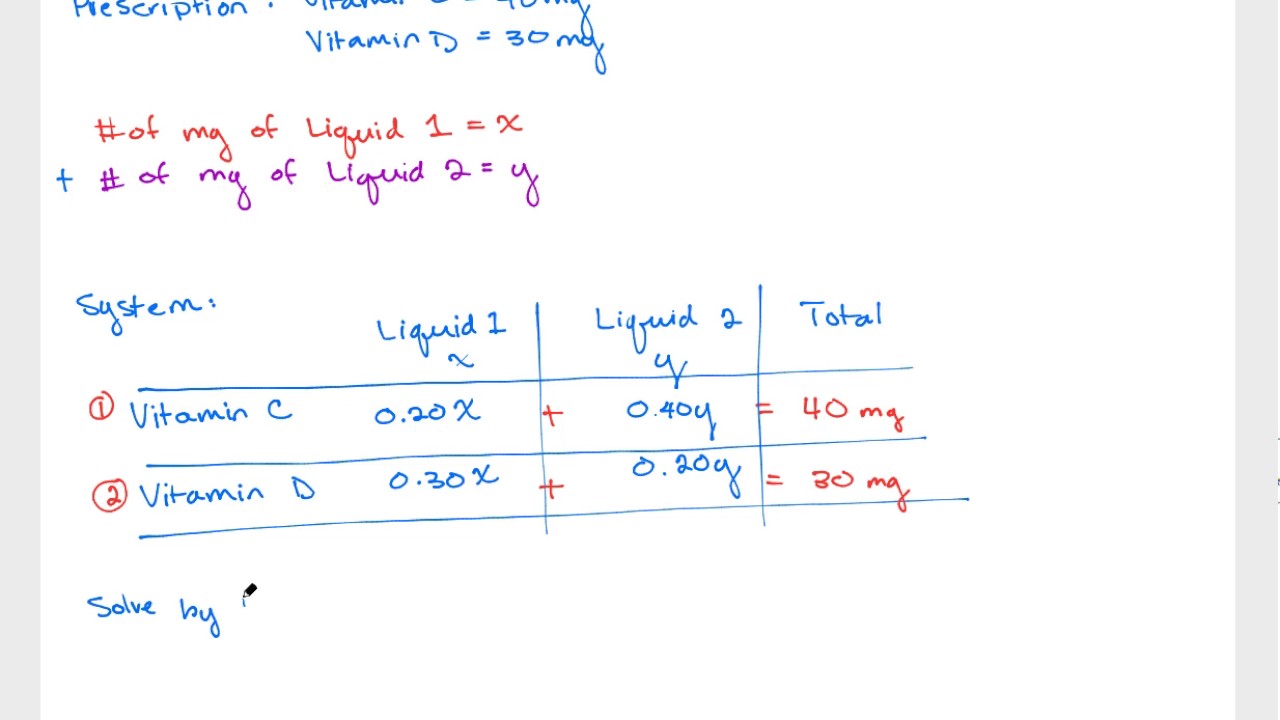 Prescription : Vitamin C = 40 mg
Vitamin D = 30 mg
# of mg of Liquid 1 = x
+ # of mg of Liquid 2 = y
System:
Liquid 1 Liquid 2 Total
x y
① Vitamin C 0.20x + 0.40y = 40 mg
② Vitamin D 0.30x + 0.20y = 30 mg
Solve by